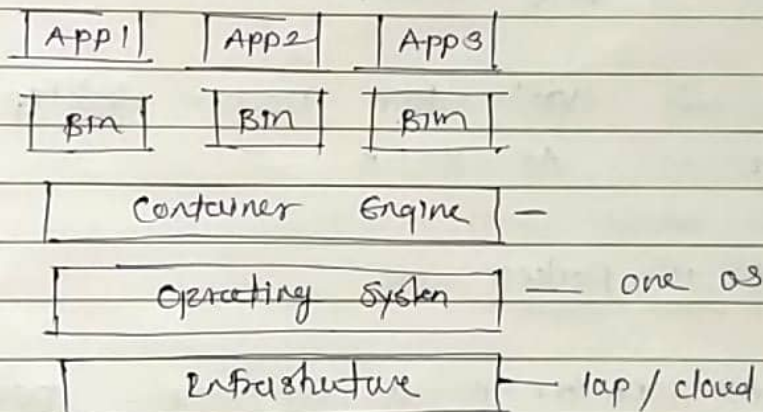 App1 App2 App3
Bin Bin Bin
Container Engine —
Operating System — one os
Infrastructure — lap / cloud